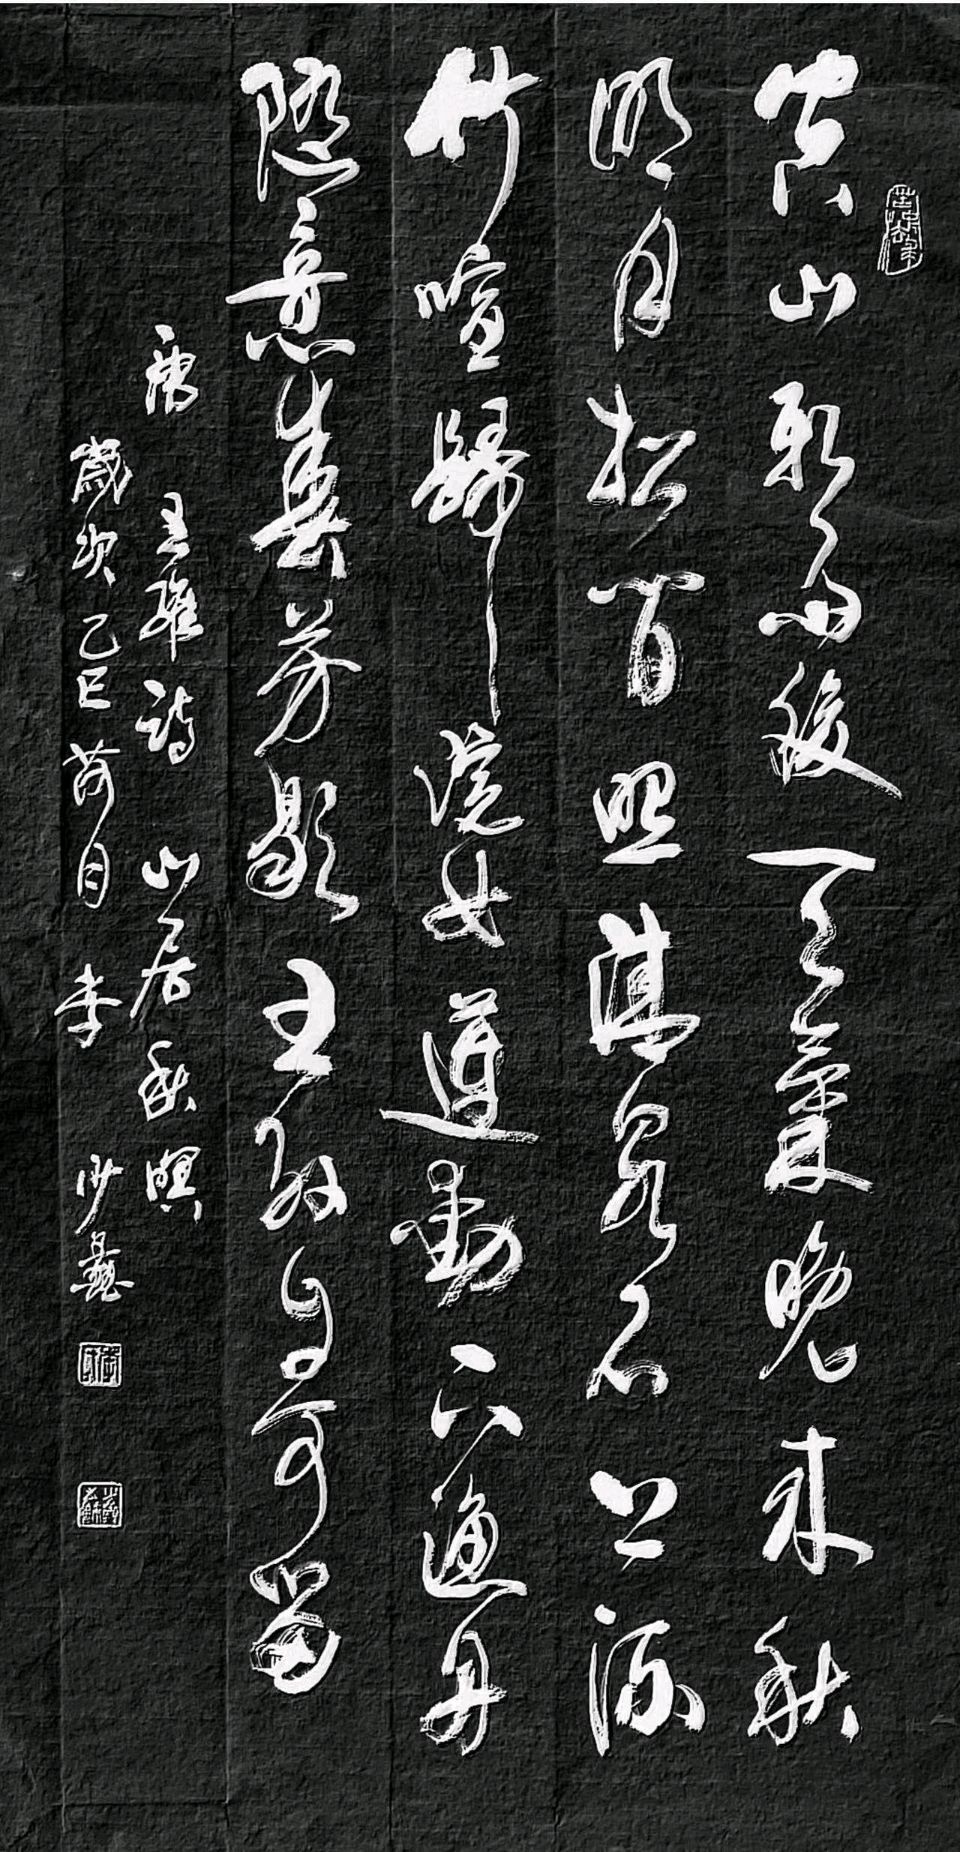 空山新雨後天氣晚來秋
明月松間照清泉石上流
竹喧歸浣女蓮動下漁舟
隨意春芳歇王孫自可留
唐 王維詩 山居秋暝
歲次乙巳荷月 李